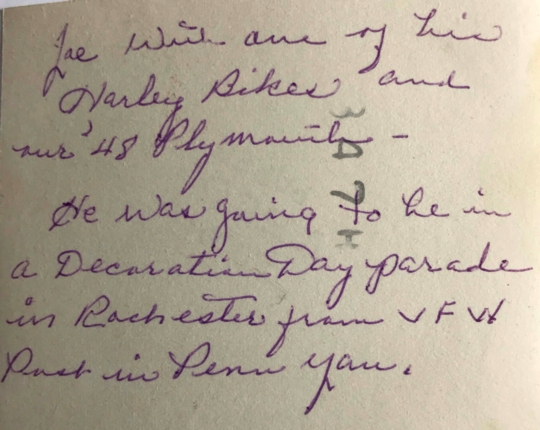 Joe with one of his
Harley Bikes and
our '48 Plymouth -
He was going to be in
a Decoration Day parade
in Rochester from VFW
Post in Penn Yan.